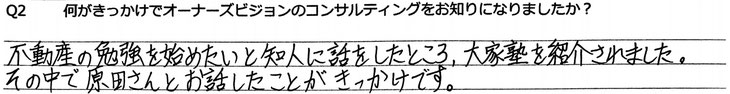 Q2　何がきっかけでオーナーズビジョンのコンサルティングをお知りになりましたか？
不動産の勉強を始めたいと知人に話をしたところ, 大家塾を紹介されました。
その中で原田さんとお話したことがきっかけです。